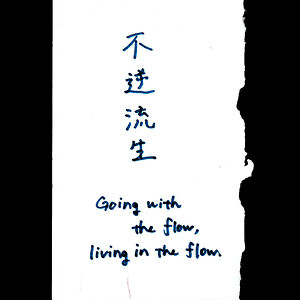 不
逆
流
生
Going with
the flow,
living in the flow.